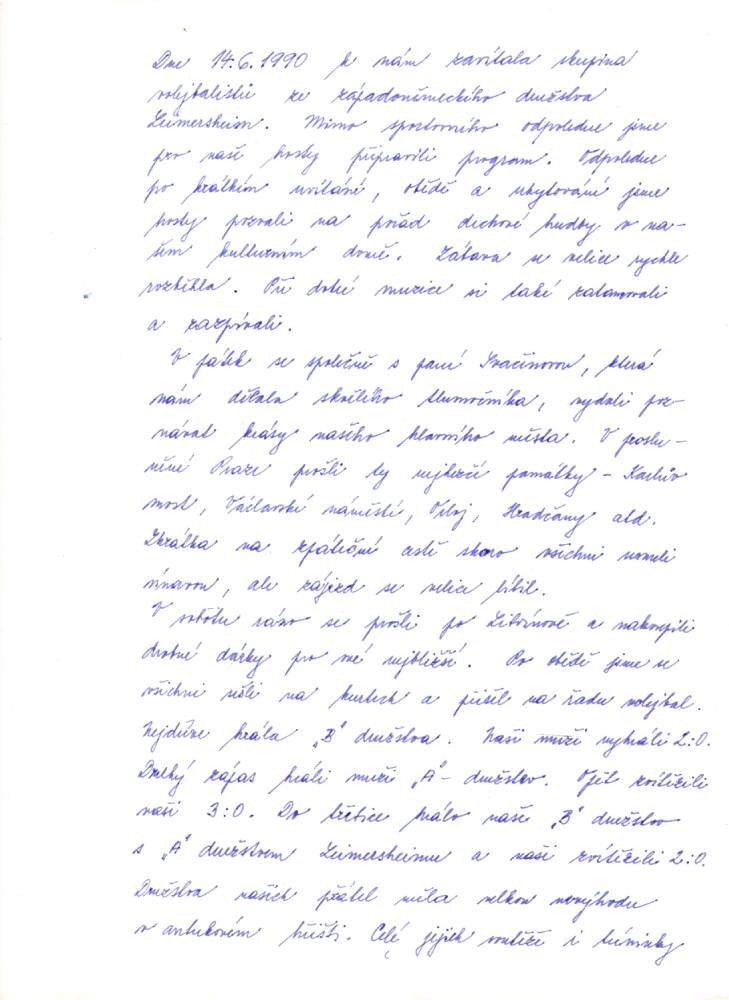 Dne 14.6.1990 k nám zavítala skupina
volejbalistů ze západoněmeckého družstva
Leimersheim. Mimo sportovního odpoledne jsme
pro naše hosty připravili program. Odpoledne
po krátkém uvítání, obědě a ubytování jsme
hosty pozvali na pořad dechové hudby v na-
šem kulturním domě. Zábava se velice rychle
rozběhla. Při dobré muzice si také zatancovali
a zazpívali.
V pátek se společně s paní Svačinovou, která
nám dělala skvělého tlumočníka, vydali poz-
návat krásy našeho hlavního města. V proslu-
něné Praze prošli ty nejhezčí památky - Karlův
most, Václavské náměstí, Orloj, Hradčany atd.
Zkrátka na zpáteční cestě skoro všichni usnuli
únavou, ale zájezd se velice líbil.
V sobotu ráno se prošli po Litvínově a nakoupili
drobné dárky pro své nejbližší. Po obědě jsme se
všichni sešli na kurtech a přišel na řadu volejbal.
Nejdříve hrála „B" družstva. Naši muži vyhráli 2:0.
Druhý zápas hráli muži „A" - družstev. Opět zvítězili
naši 3:0. Do třetice hrálo naše „B" družstvo
s „A" družstvem Leimersheimu a naši zvítězili 2:0.
Družstva našich přátel měla velkou nevýhodu
v antukovém hřišti. Celé jejich soutěže i tréninky